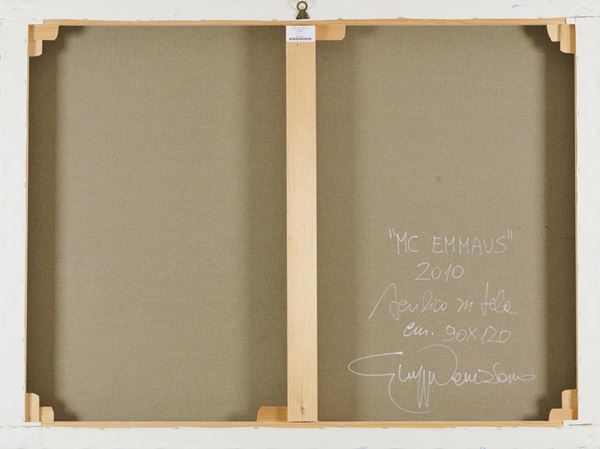 "MC EMMAUS"
2010
Acrilico su tela
cm. 90X120
Giuseppe Veneziano